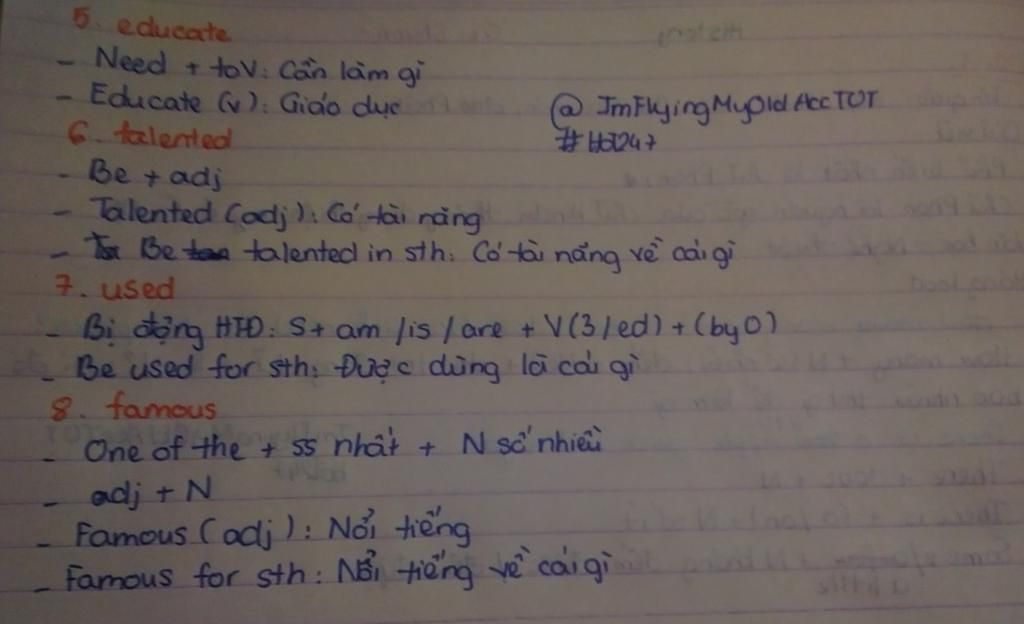 5. educate
- Need + toV: Cần làm gì
- Educate (v): Giáo dục
@ JmFlyingMyOldAccTOT
6. talented
- Be + adj
- Talented (adj): Có tài năng
- Be talented in sth: Có tài năng về cái gì
7. used
- Bị động HTĐ: S + am / is / are + V(3/ed) + (by O)
- Be used for sth: Được dùng là cái gì
8. famous
- One of the + ss nhất + N số nhiều
- adj + N
- Famous (adj): Nổi tiếng
- Famous for sth: Nổi tiếng về cái gì